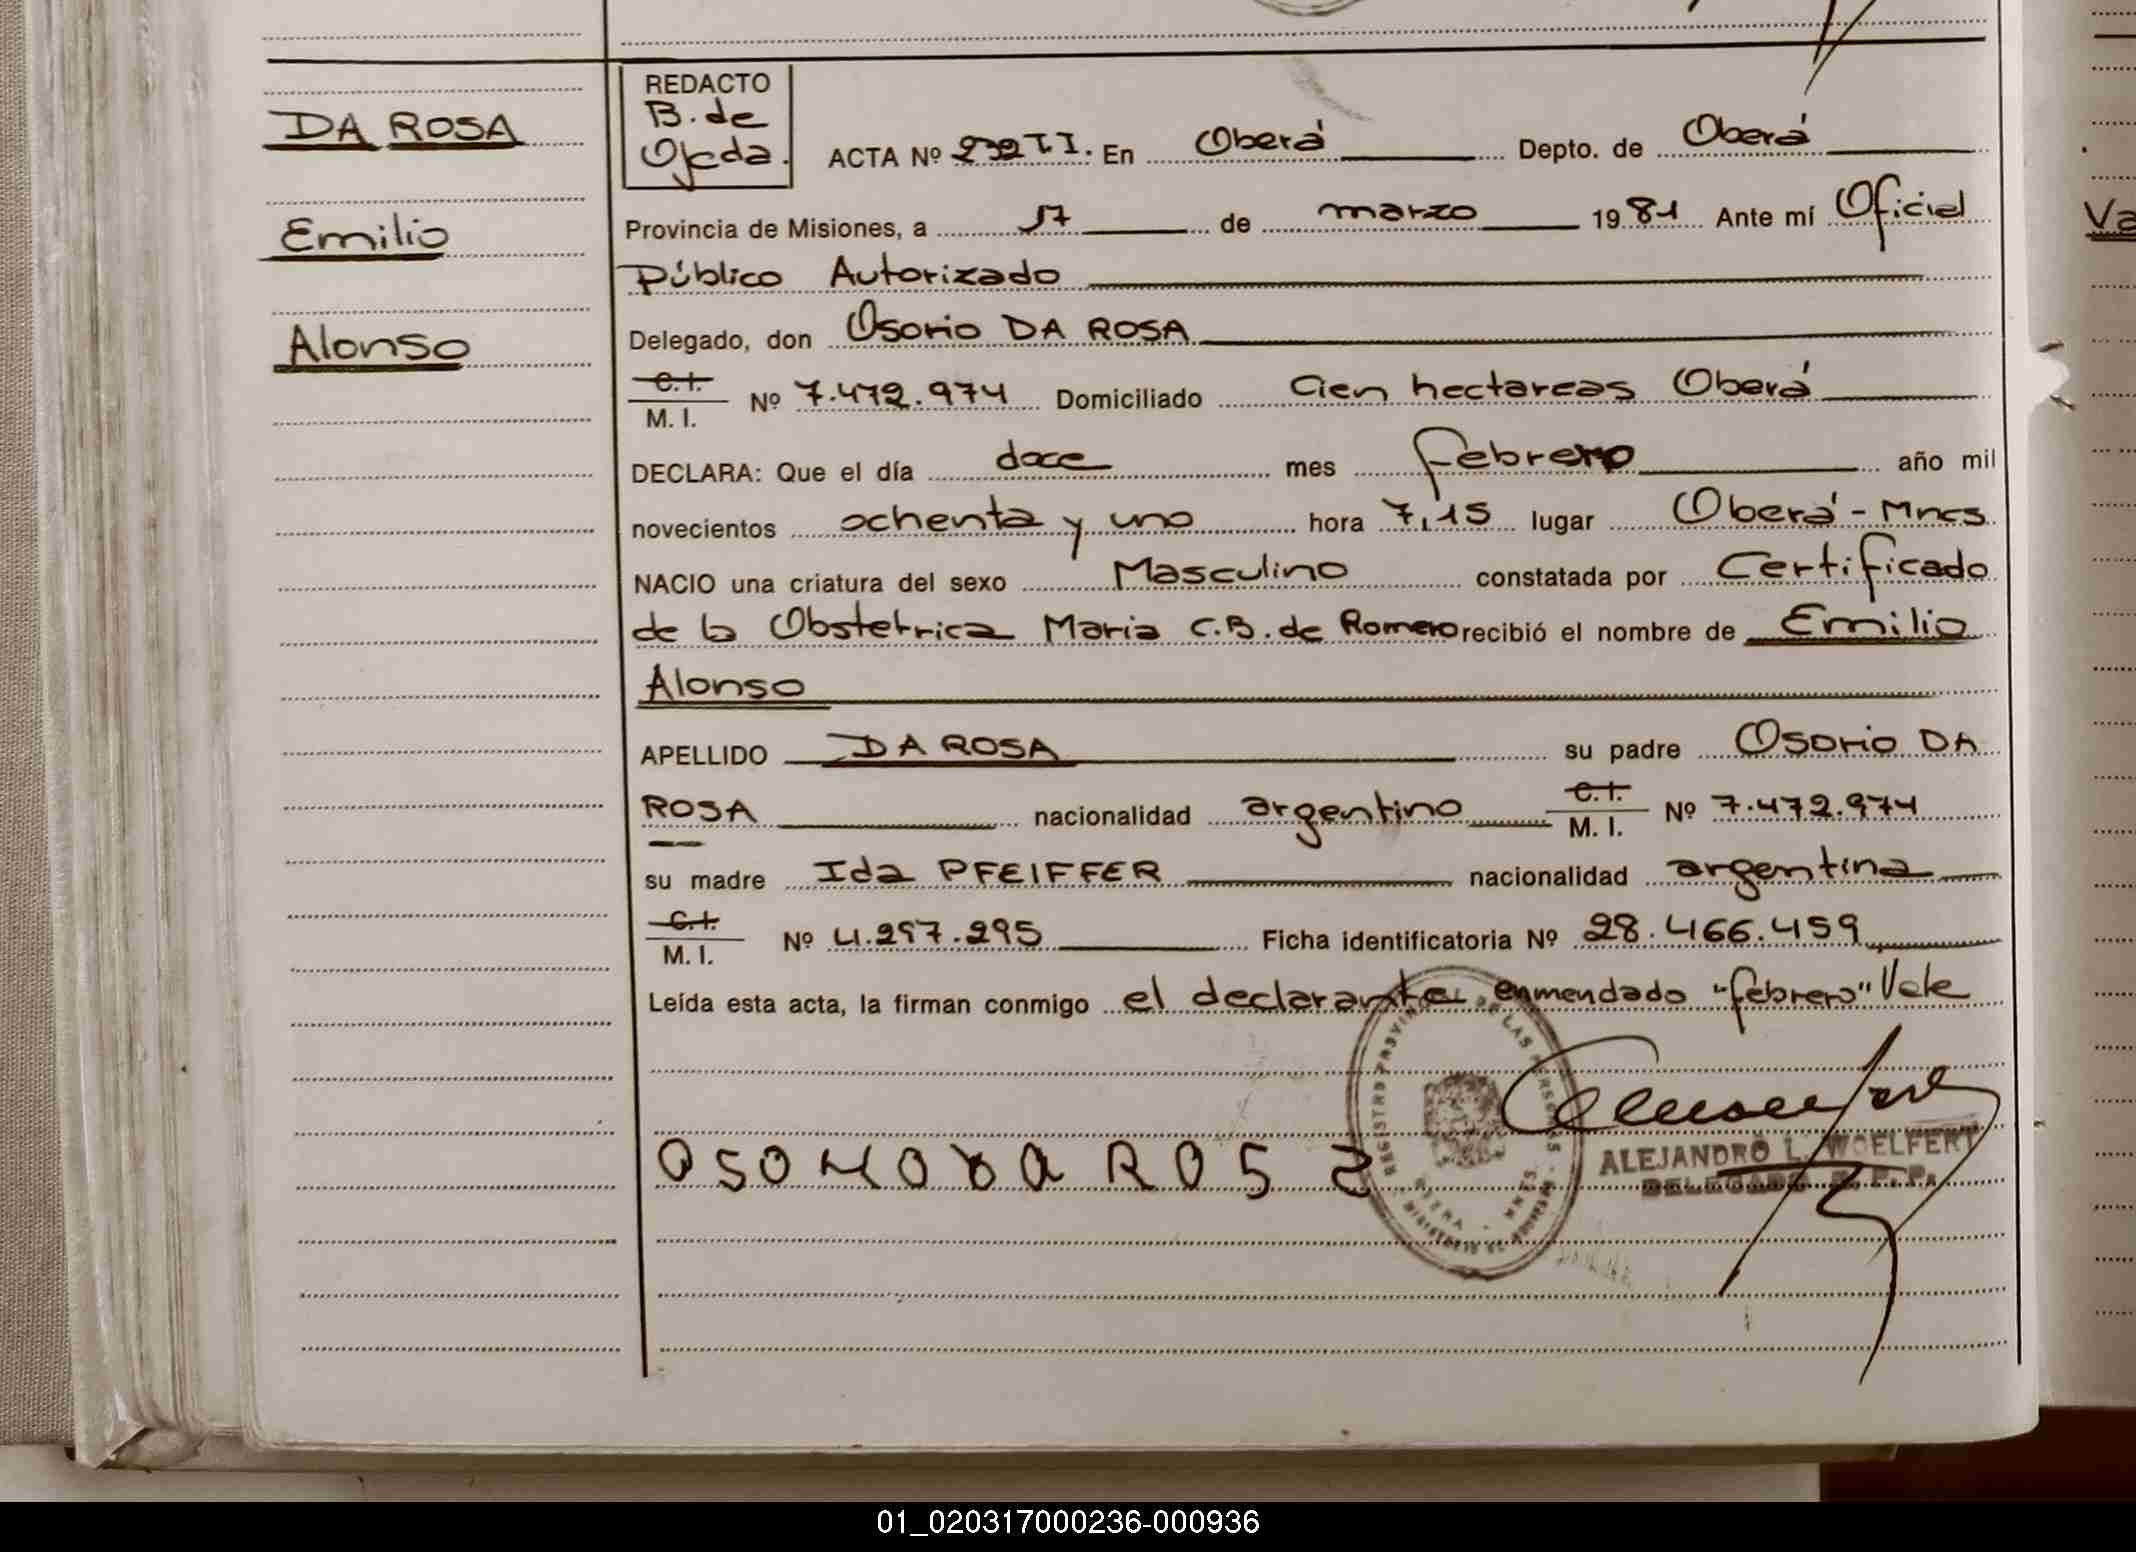 DA ROSA
Emilio
Alonso
REDACTO
B. de
Ojeda.
ACTA Nº 232 T I. En Oberá Depto. de Oberá
Provincia de Misiones, a 17 de marzo 1981 Ante mí Oficial
Público Autorizado
Delegado, don Osorio DA ROSA
C.I.
M. I. Nº 7.472.974 Domiciliado Cien hectareas Oberá
DECLARA: Que el día doce mes febrero año mil
novecientos ochenta y uno hora 7,15 lugar Oberá - Mnes.
NACIO una criatura del sexo Masculino constatada por Certificado
de la Obstetrica Maria C.B. de Romero recibió el nombre de Emilio
Alonso
APELLIDO DA ROSA su padre Osorio DA
ROSA nacionalidad argentino C.I. M. I. Nº 7.472.974
su madre Ida PFEIFFER nacionalidad argentina
C.I.
M. I. Nº 4.297.295 Ficha identificatoria Nº 28.466.459
Leída esta acta, la firman conmigo el declarante, enmendado "febrero" Vale
ALEJANDRO L. WOELFERT
DELEGADO R. P. P.
Va
01_020317000236-000936